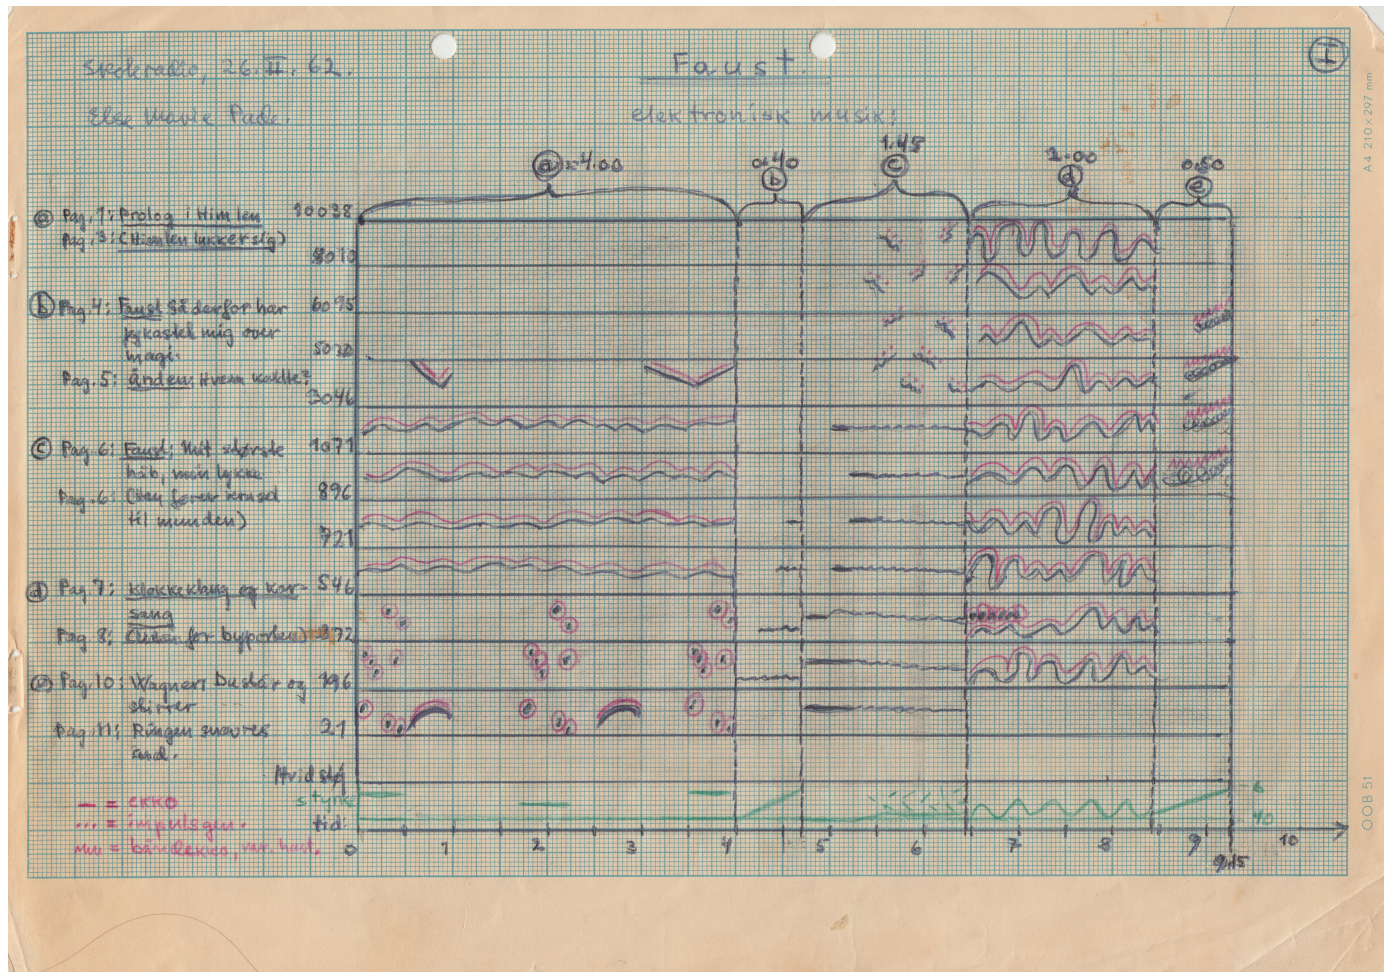 Skoleradio, 26.II.62.
Faust.
I
Else Marie Pade.
elektronisk musik:
ⓐ = 4.00
0.40
ⓑ
1.45
ⓒ
2.00
ⓓ
0.50
ⓔ
ⓐ Pag. 1: Prolog i Himlen
Pag. 3: (Himlen lukker sig)
ⓑ Pag. 4: Faust Så derfor har
jeg kastet mig over
magi.
Pag. 5: Ånden: Hvem kaldte?
ⓒ Pag. 6: Faust: Mit største
håb, min lykke
Pag. 6: (Han fører
til munden)
ⓓ Pag. 7: Klokkeklang og kor-
sang
Pag. 8: (Uden for byporten)
ⓔ Pag. 10: Wagner: Du står og
stirrer
Pag. 11: Ringen snævres
ind.
10038
8010
6095
5020
3046
1071
896
721
546
372
196
21
Hvid støj
styrke
tid:
— = ekko
... = impulsgen.
= båndekko, var. hast.
0
1
2
3
4
5
6
7
8
9
9.15
10
- 6
- 40
A4 210×297 mm
OOB 51